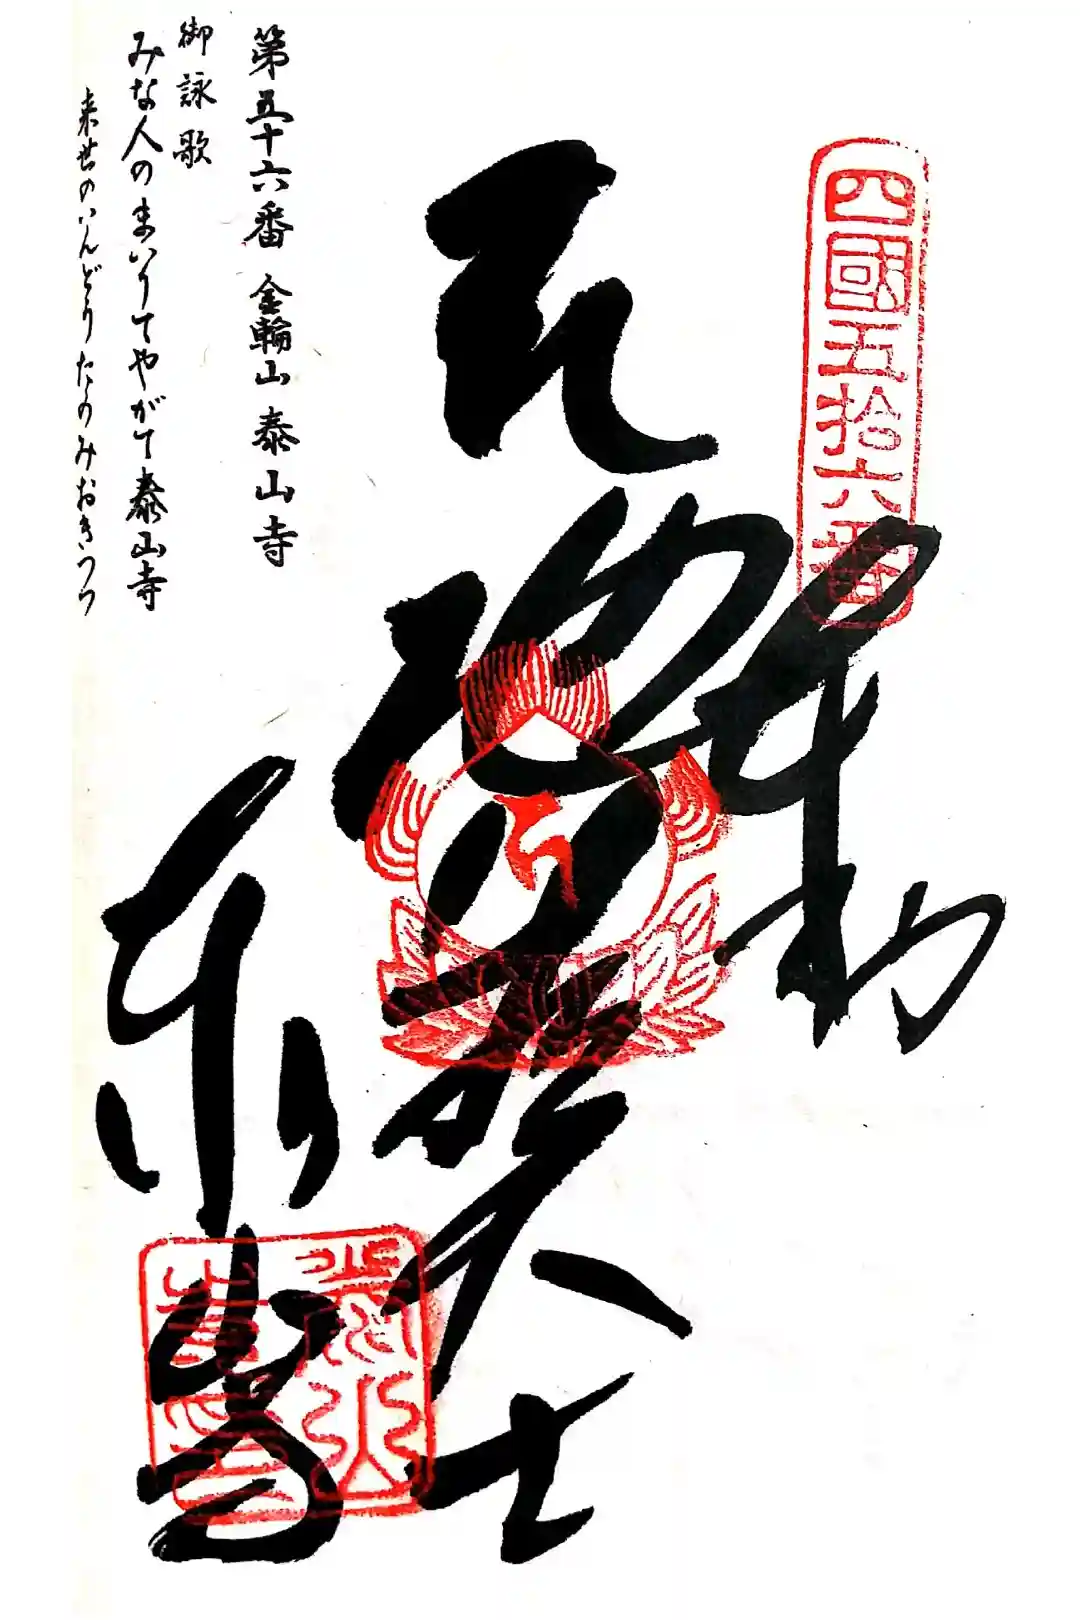 四國五拾六番
奉納
地蔵大士
泰山寺
第五十六番 金輪山 泰山寺
御詠歌
みな人のまいりてやがて泰山寺
来世のいんどうたのみおきつつ